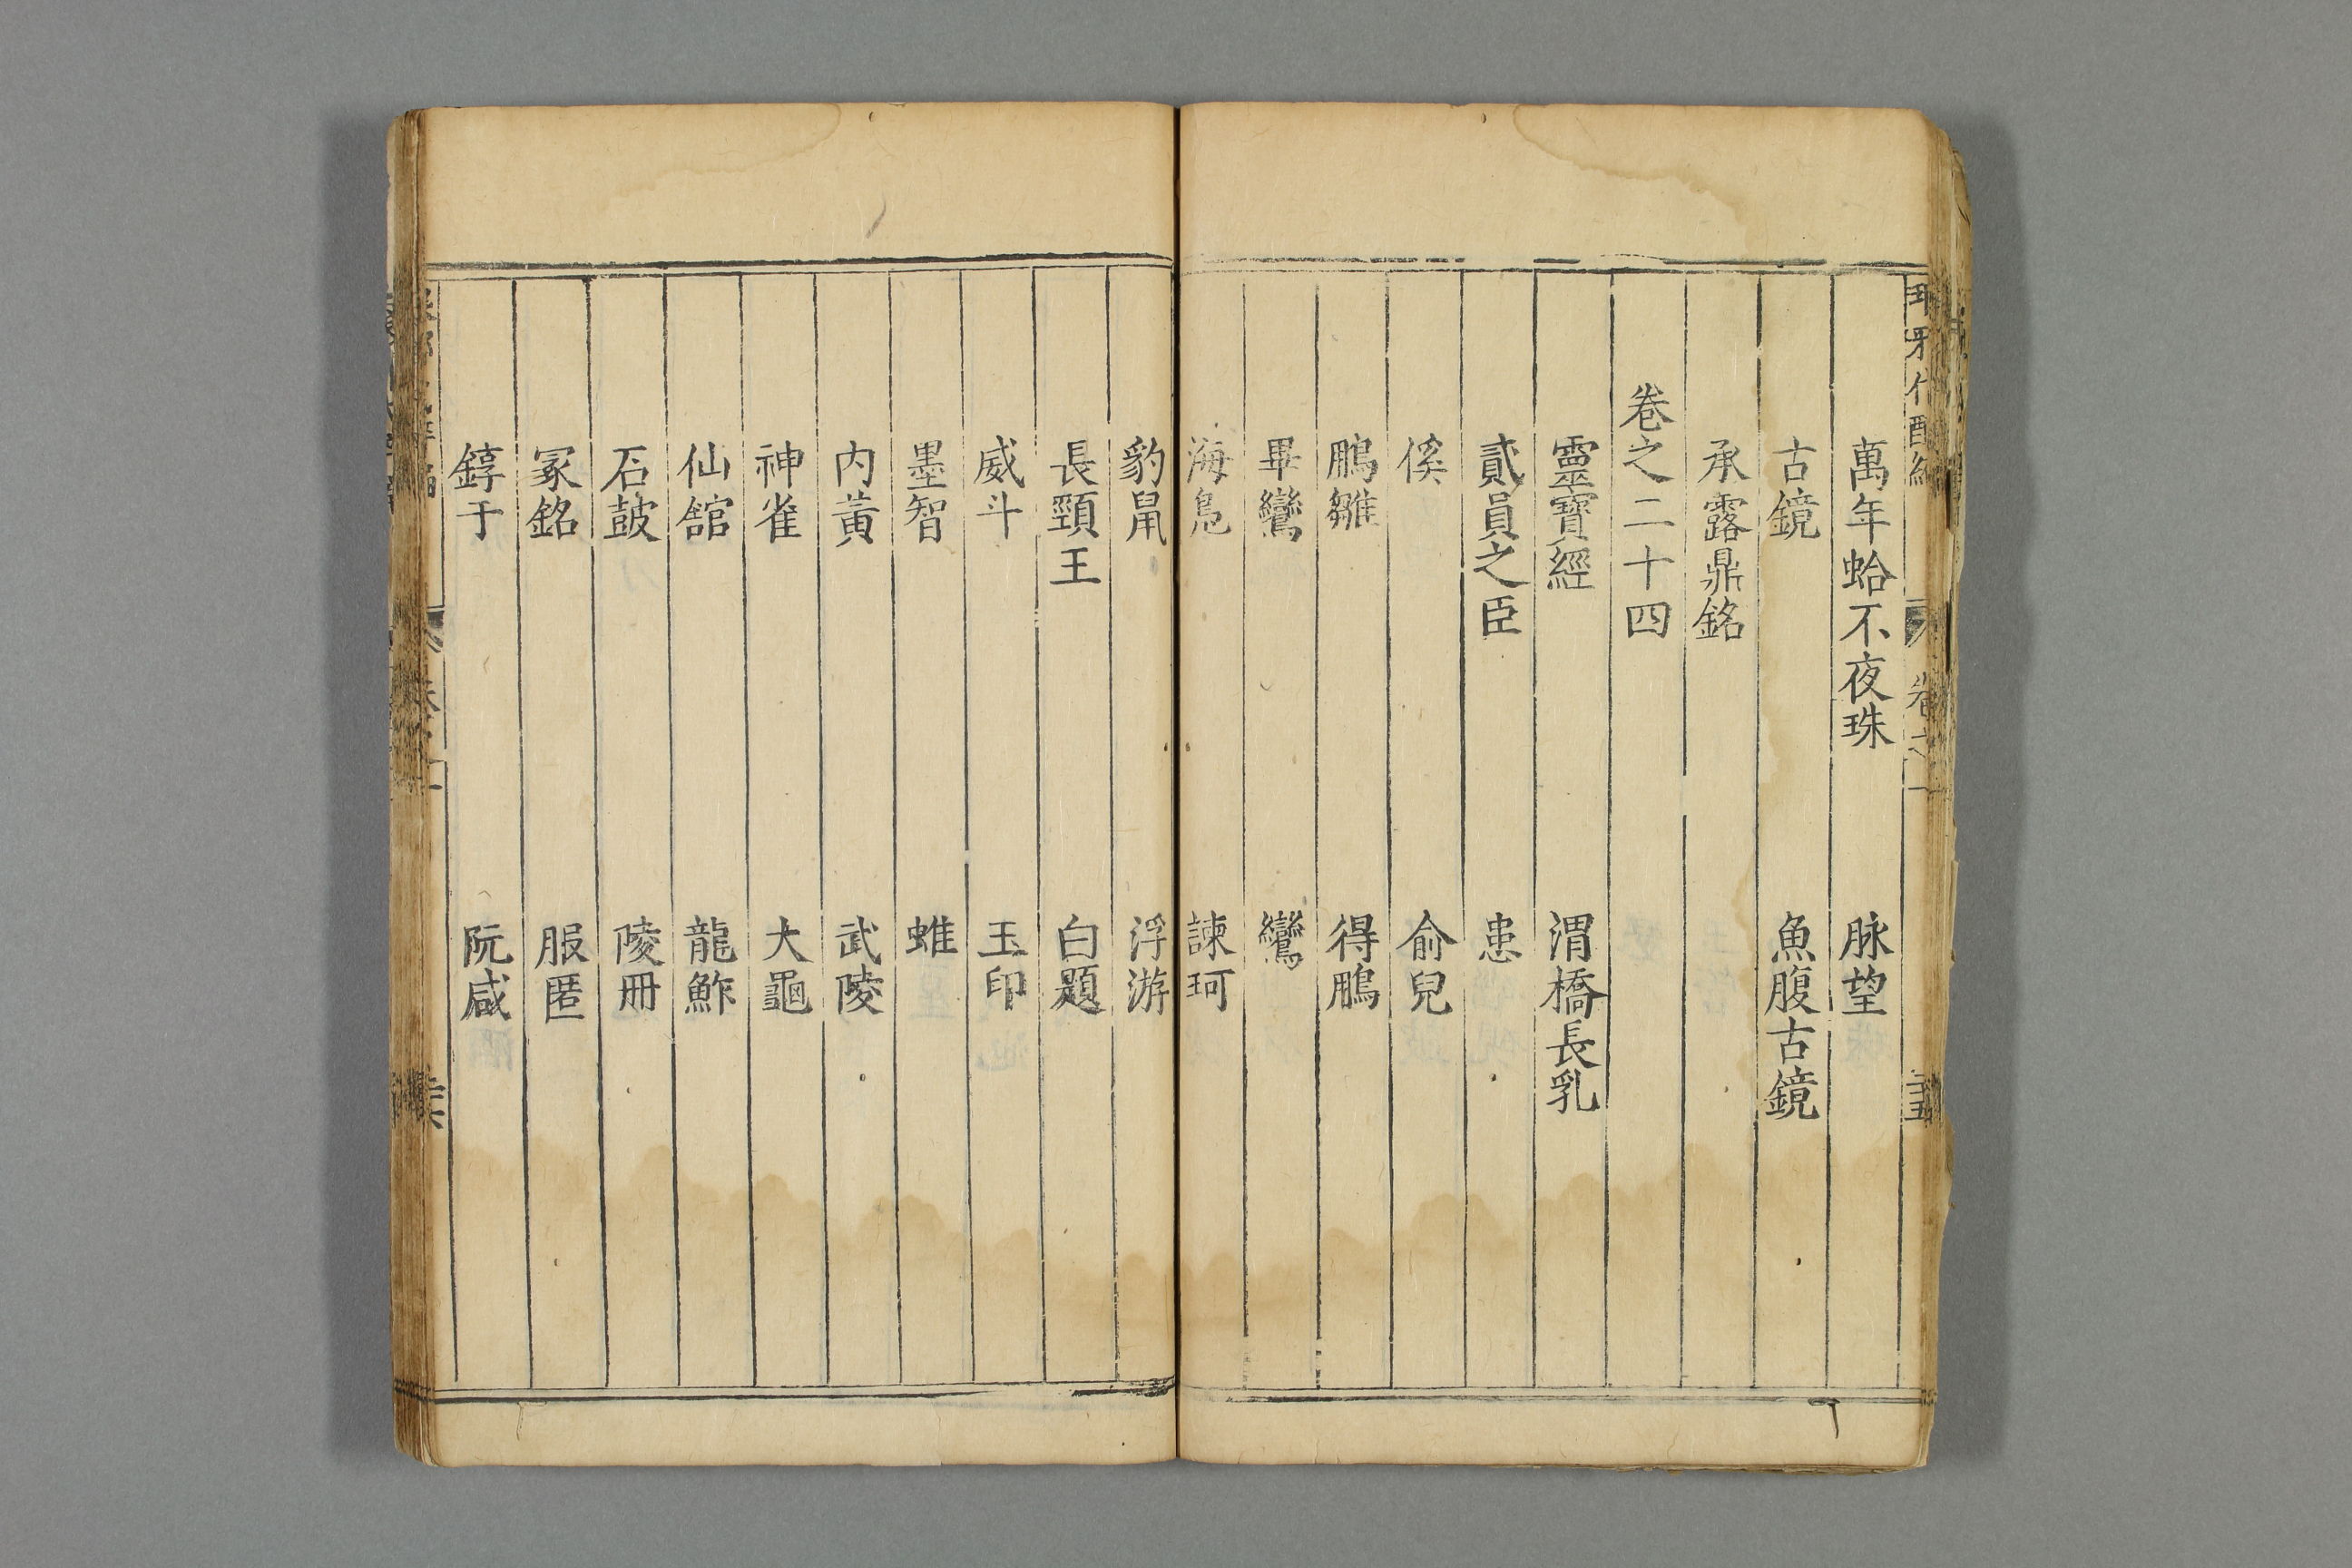 萬年蛤不夜珠 脉望
古鏡 魚腹古鏡
承露鼎銘
卷之二十四
靈寶經 渭橋長乳
貳員之臣 患
傒 俞兒
鵬雛 得鵬
畢鸞 鸞
海鳧 諫珂
豹鼠 浮游
長頸王 白題
威斗 玉印
墨智 蜼
内黃 武陵
神雀 大龜
仙館 龍鮓
石皷 陵冊
冢銘 服匿
錞于 阮咸